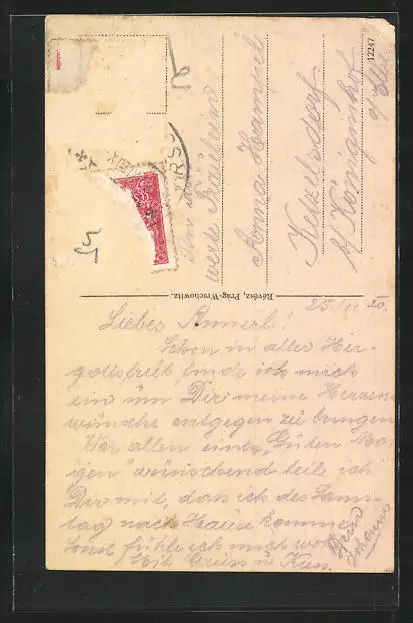 An die
werte Fräulein
Anna Hampel
Ketzelsdorf
b/ Königinhof
a/ Elbe
12247
Révész, Prág-Wrschowitz.
25./11 20.
Liebes Annerl!
Schon in aller Her-
gottsfrüh finde ich mich
ein um Dir meine Herzens
wünsche entgegen zu bringen
Vor allen einen „Guten Mor-
gen" wünschend teile ich
Dir mit, dass ich des Sams-
tag nach Hause komme.
Sonst fühle ich mich wohl
Mit Gruss u Kuss.
Dein